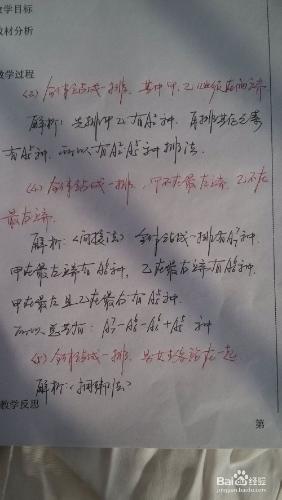 教学目标
教材分析
教学过程
(3) 全体站成一排,其中甲、乙必须在两端
解析:先排甲乙有A₂²种,再排其余元素
有A₅⁵种,所以有A₂²A₅⁵种排法.
(4) 全体站成一排,甲不在最左端,乙不在
最右端.
解析:(间接法) 全体站成一排有A₇⁷种.
甲在最左端有A₆⁶种,乙在最右端有A₆⁶种.
甲在最左且乙在最右有A₅⁵种.
所以 总共有:A₇⁷-A₆⁶-A₆⁶+A₅⁵ 种
(5) 全体站成一排,男女生各站在一起
解析:(捆绑法)
教学反思
第
Baidu经验
jingyan.baidu.com